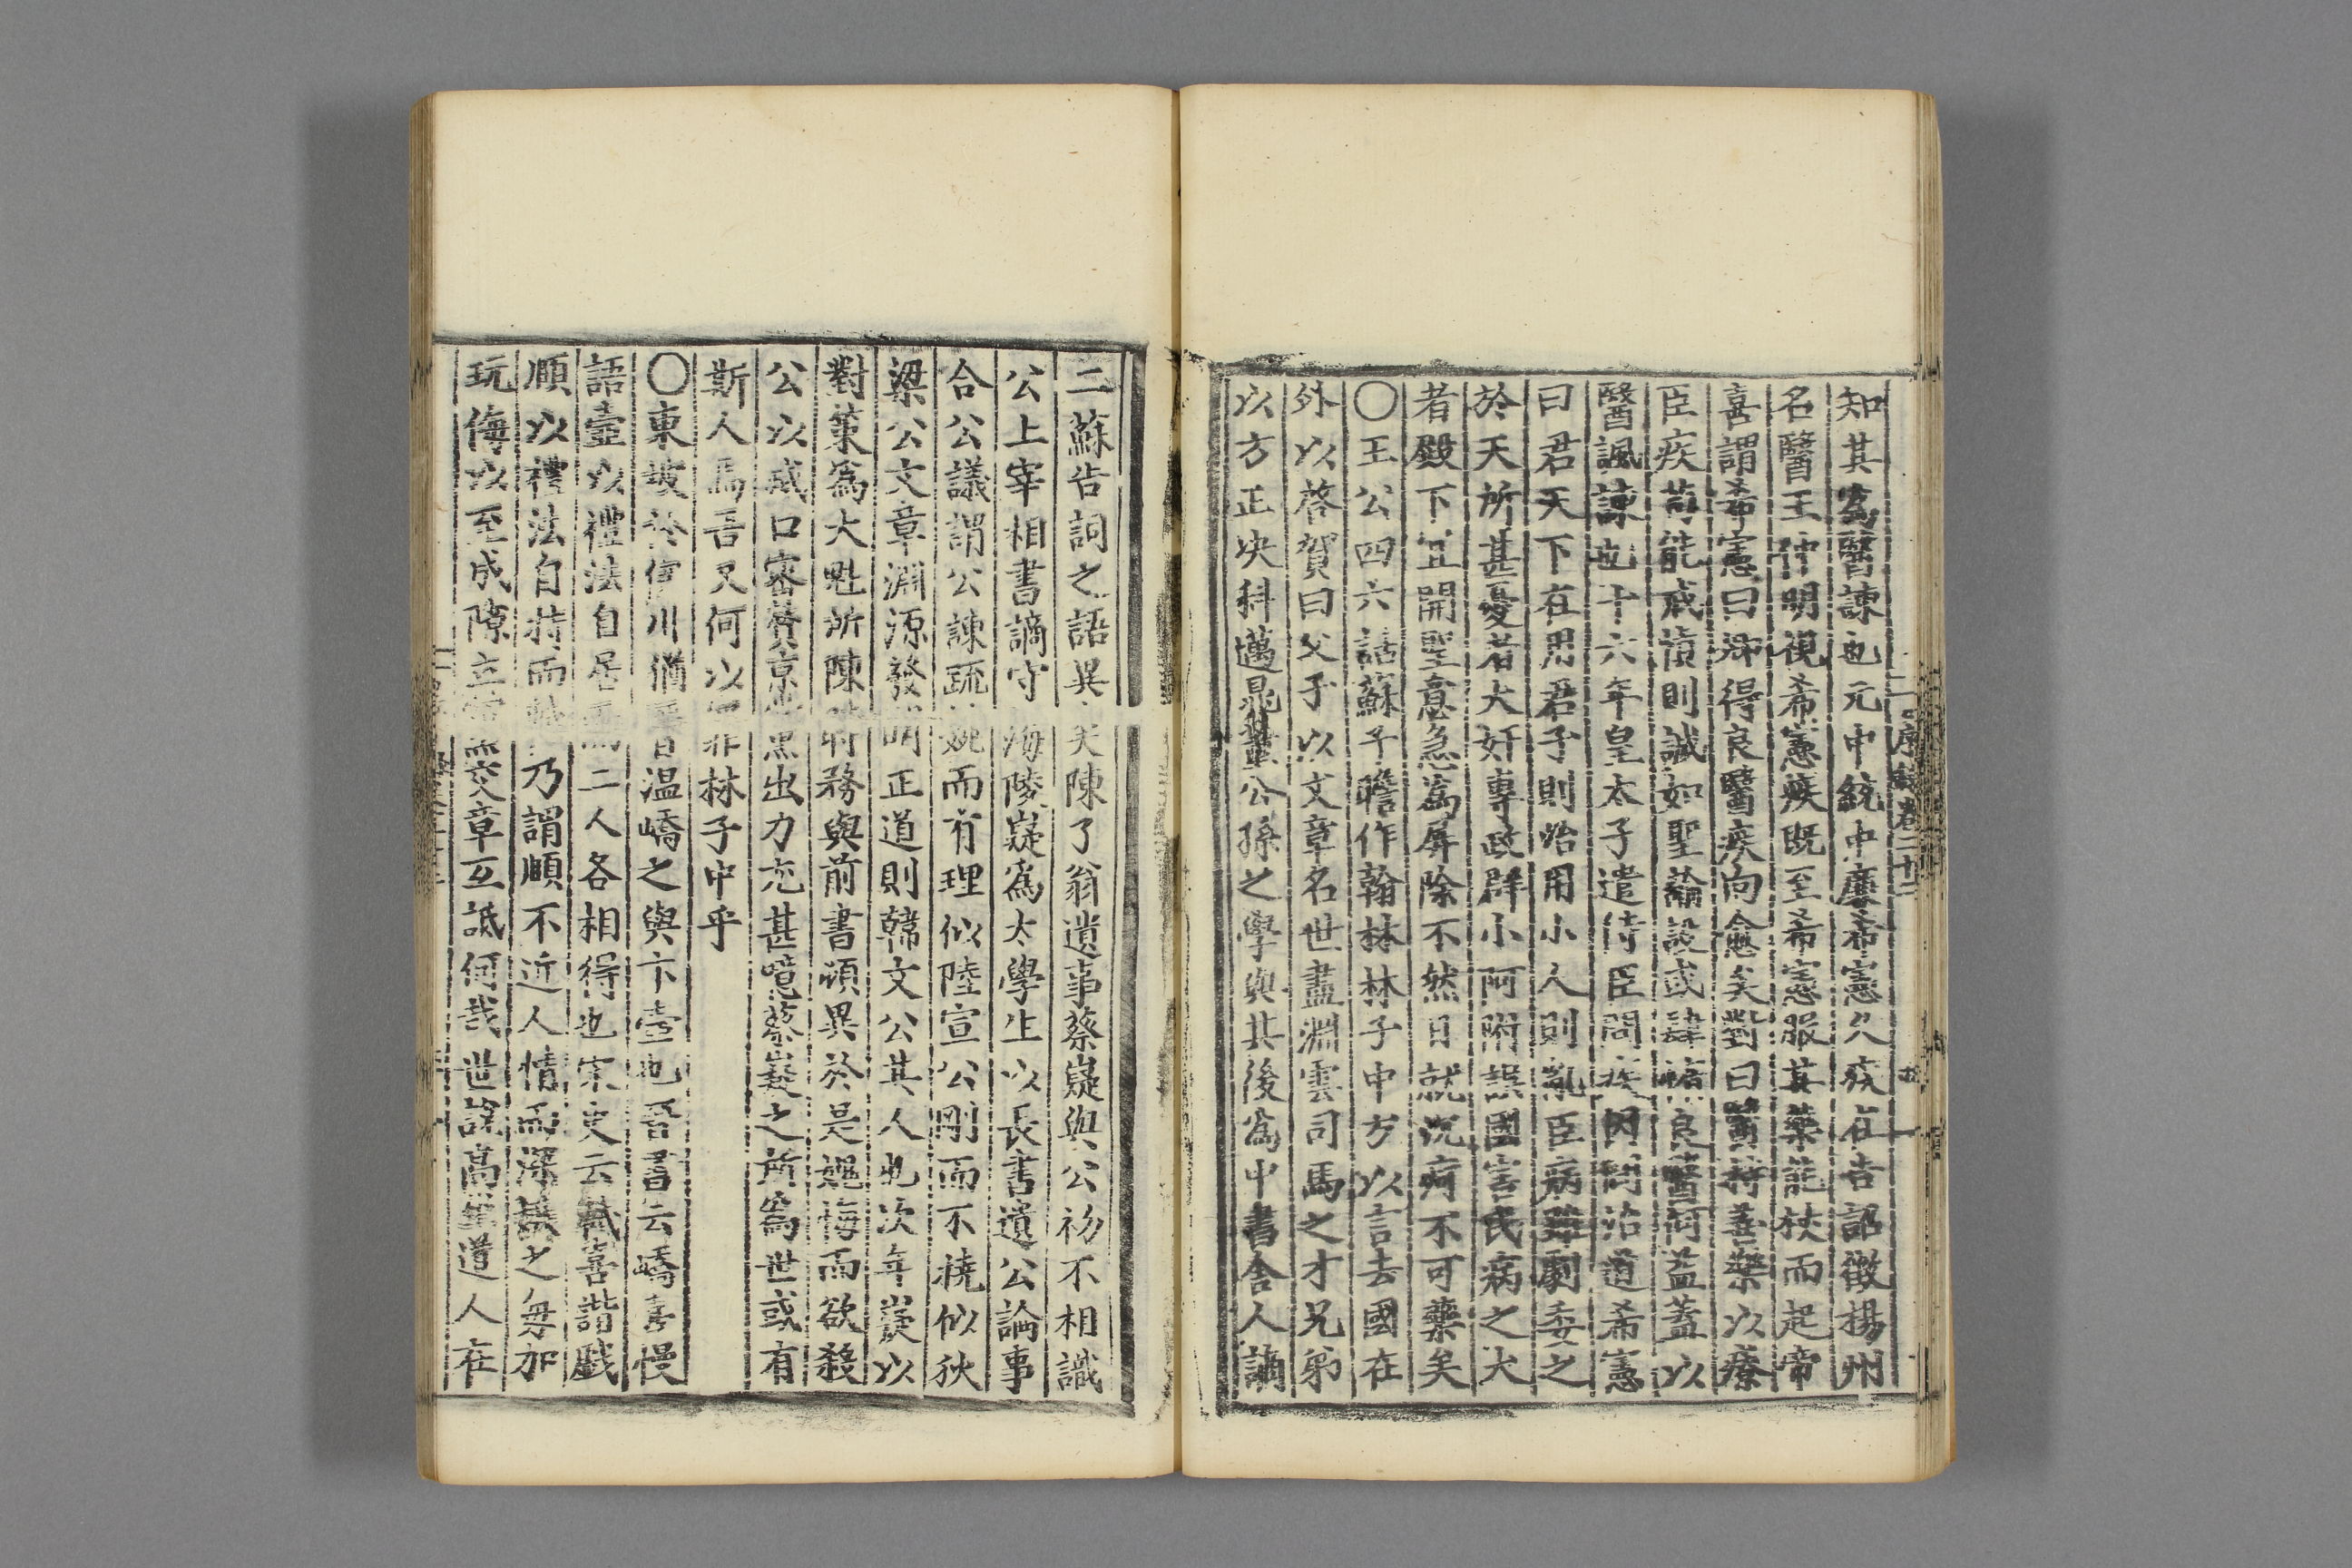 知其爲醫諫也元中統中廉希憲久疾在告詔徵揚州
名醫王仲明視希憲疾既至希憲服其藥能杖而起帝
喜謂希憲曰卿得良醫疾向愈矣對曰醫持善藥以療
臣疾苟能戒慎則誠如聖諭設或肆惰良醫何益蓋以
醫諷諫也十六年皇太子遣侍臣問疾因問治道希憲
曰君天下在用君子則治用小人則亂臣病雖劇委之
於天所甚憂者大奸專政群小阿附誤國害民病之大
者殿下宜開聖意急爲屏除不然日就沉痾不可藥矣
〇王公四六話蘇子瞻作翰林林子中方以言去國在
外以啓賀曰父子以文章名世盡淵雲司馬之才兄弟
以方正决科邁晁董公孫之學與其後爲中書舍人謫
二蘇告詞之語異矣陳了翁遺事蔡嶷與公初不相識
公上宰相書謫守海陵嶷爲太學生以長書遺公論事
合公議謂公諫疏婉而有理似陸宣公剛而不撓似狄
梁公文章淵源發明正道則韓文公其人也次年嶷以
對策爲大魁所陳時務與前書頓異於是愧悔而欲殺
公以滅口密贊京黨出力尤甚噫蔡嶷之所爲世或有
斯人焉吾又何以罪林子中乎
〇東坡於伊川猶晉温嶠之與卞壼也晉書云嶠喜慢
語壼以禮法自居而二人各相得也宋史云軾喜諧戲
頤以禮法自持而軾乃謂頤不近人情而深嫉之每加
玩侮以至成隙立黨交章互詆何哉世謂高道人在
二十二